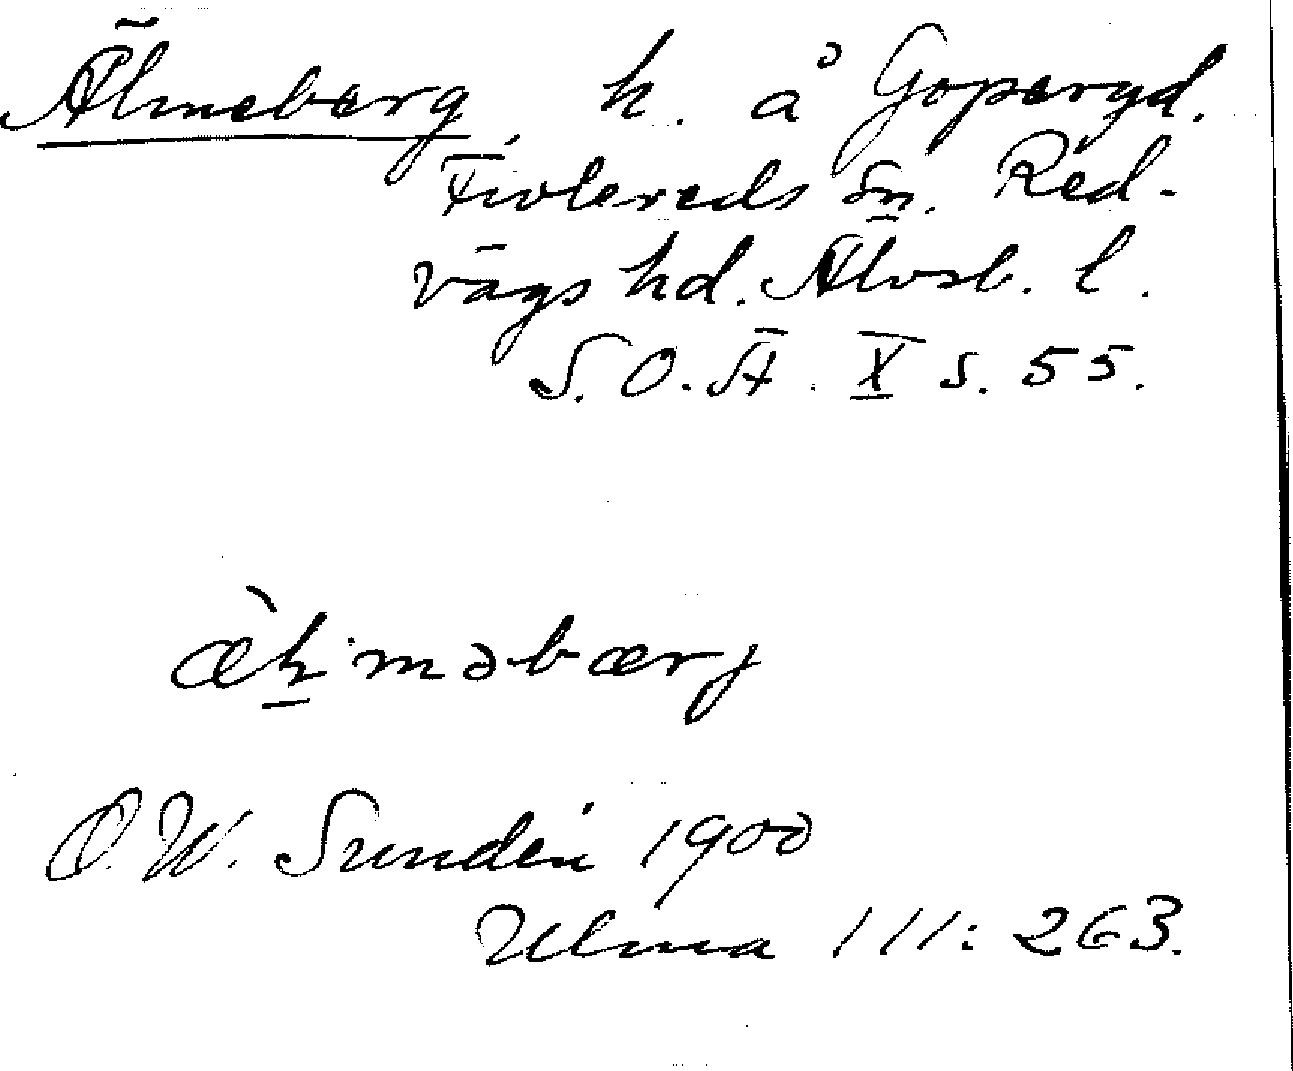 Älmeberg, h. å Gopergd.
Fivlereds sn. Red-
vägs hd. Älvsb. l.
S.O.Ä. X s. 55.
O.W. Sundén 1900
Ulma 111: 263.